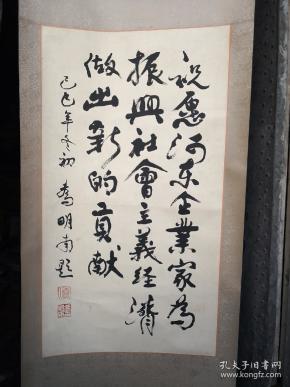 祝愿河东企業家為
振興社會主義经濟
做出新的貢献
己巳年冬初 喬明甫題
孔夫子旧书网